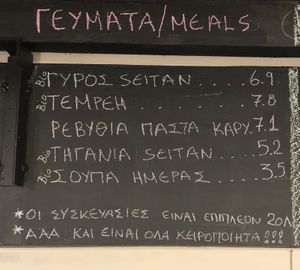 ΓΕΥΜΑΤΑ/MEALS
Bio ΓΥΡΟΣ SEITAN.....6.9
Bio TEMPEH.....7.8
ΡΕΒΥΘΙΑ ΠΑΣΤΑ ΚΑΡΥ.7.1
Bio ΤΗΓΑΝΙΑ SEITAN...5.2
Bio ΣΟΥΠΑ ΗΜΕΡΑΣ.....3.5
*ΟΙ ΣΥΣΚΕΥΑΣΙΕΣ ΕΙΝΑΙ ΕΠΙΠΛΕΟΝ 20Λ
*ΑΑΑ ΚΑΙ ΕΙΝΑΙ ΟΛΑ ΧΕΙΡΟΠΟΙΗΤΑ!!!